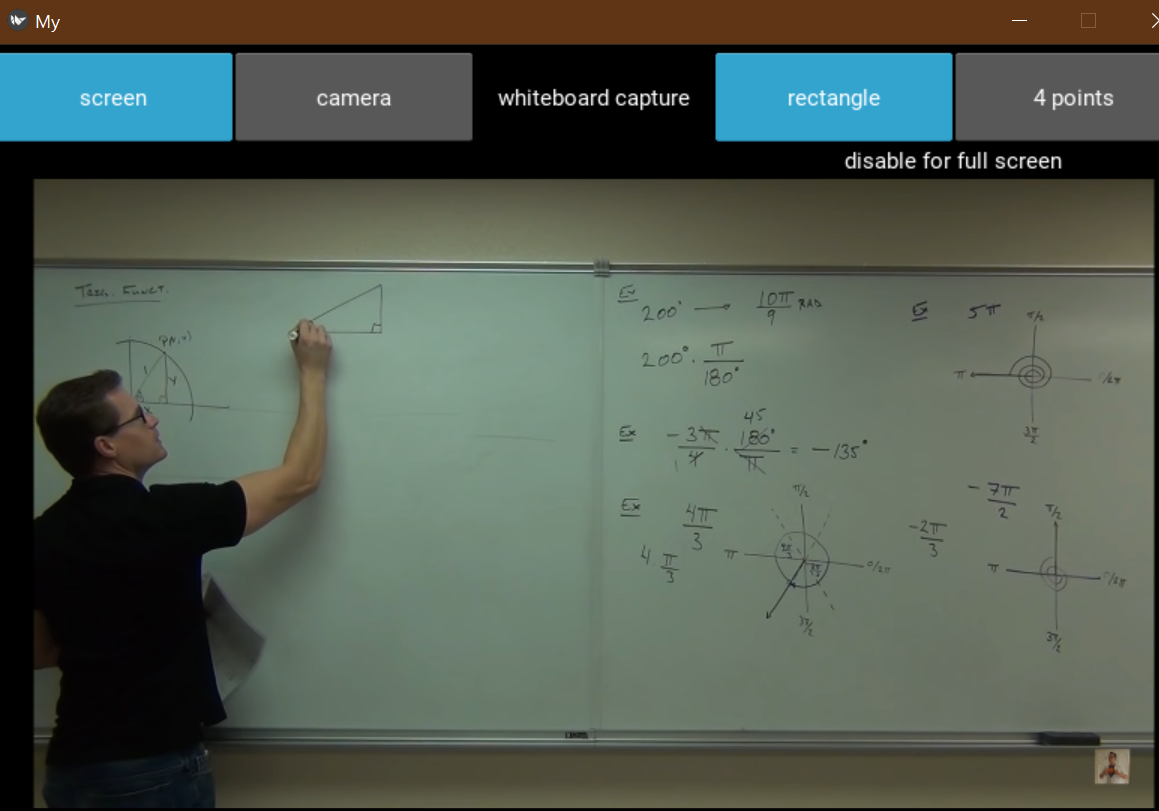 My
screen
camera
whiteboard capture
rectangle
4 points
disable for full screen
TRIG. FUNCT.
1
y
Ex
200° → 10π/9 RAD
200° · π/180°
Ex
45
-3π/4 · 180°/π = -135°
1
Ex
4π/3
4 π/3
π/2
π
0/2π
3π/2
2π/3
Ex
5π
π/2
π
0/2π
3π/2
-7π/2
-2π/3
π/2
π
0/2π
3π/2